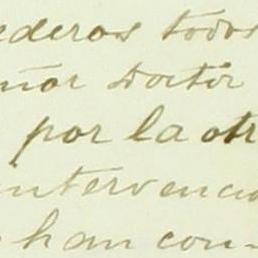 ederos todos
ñor Doctor
por la otr
intervenció
han con-